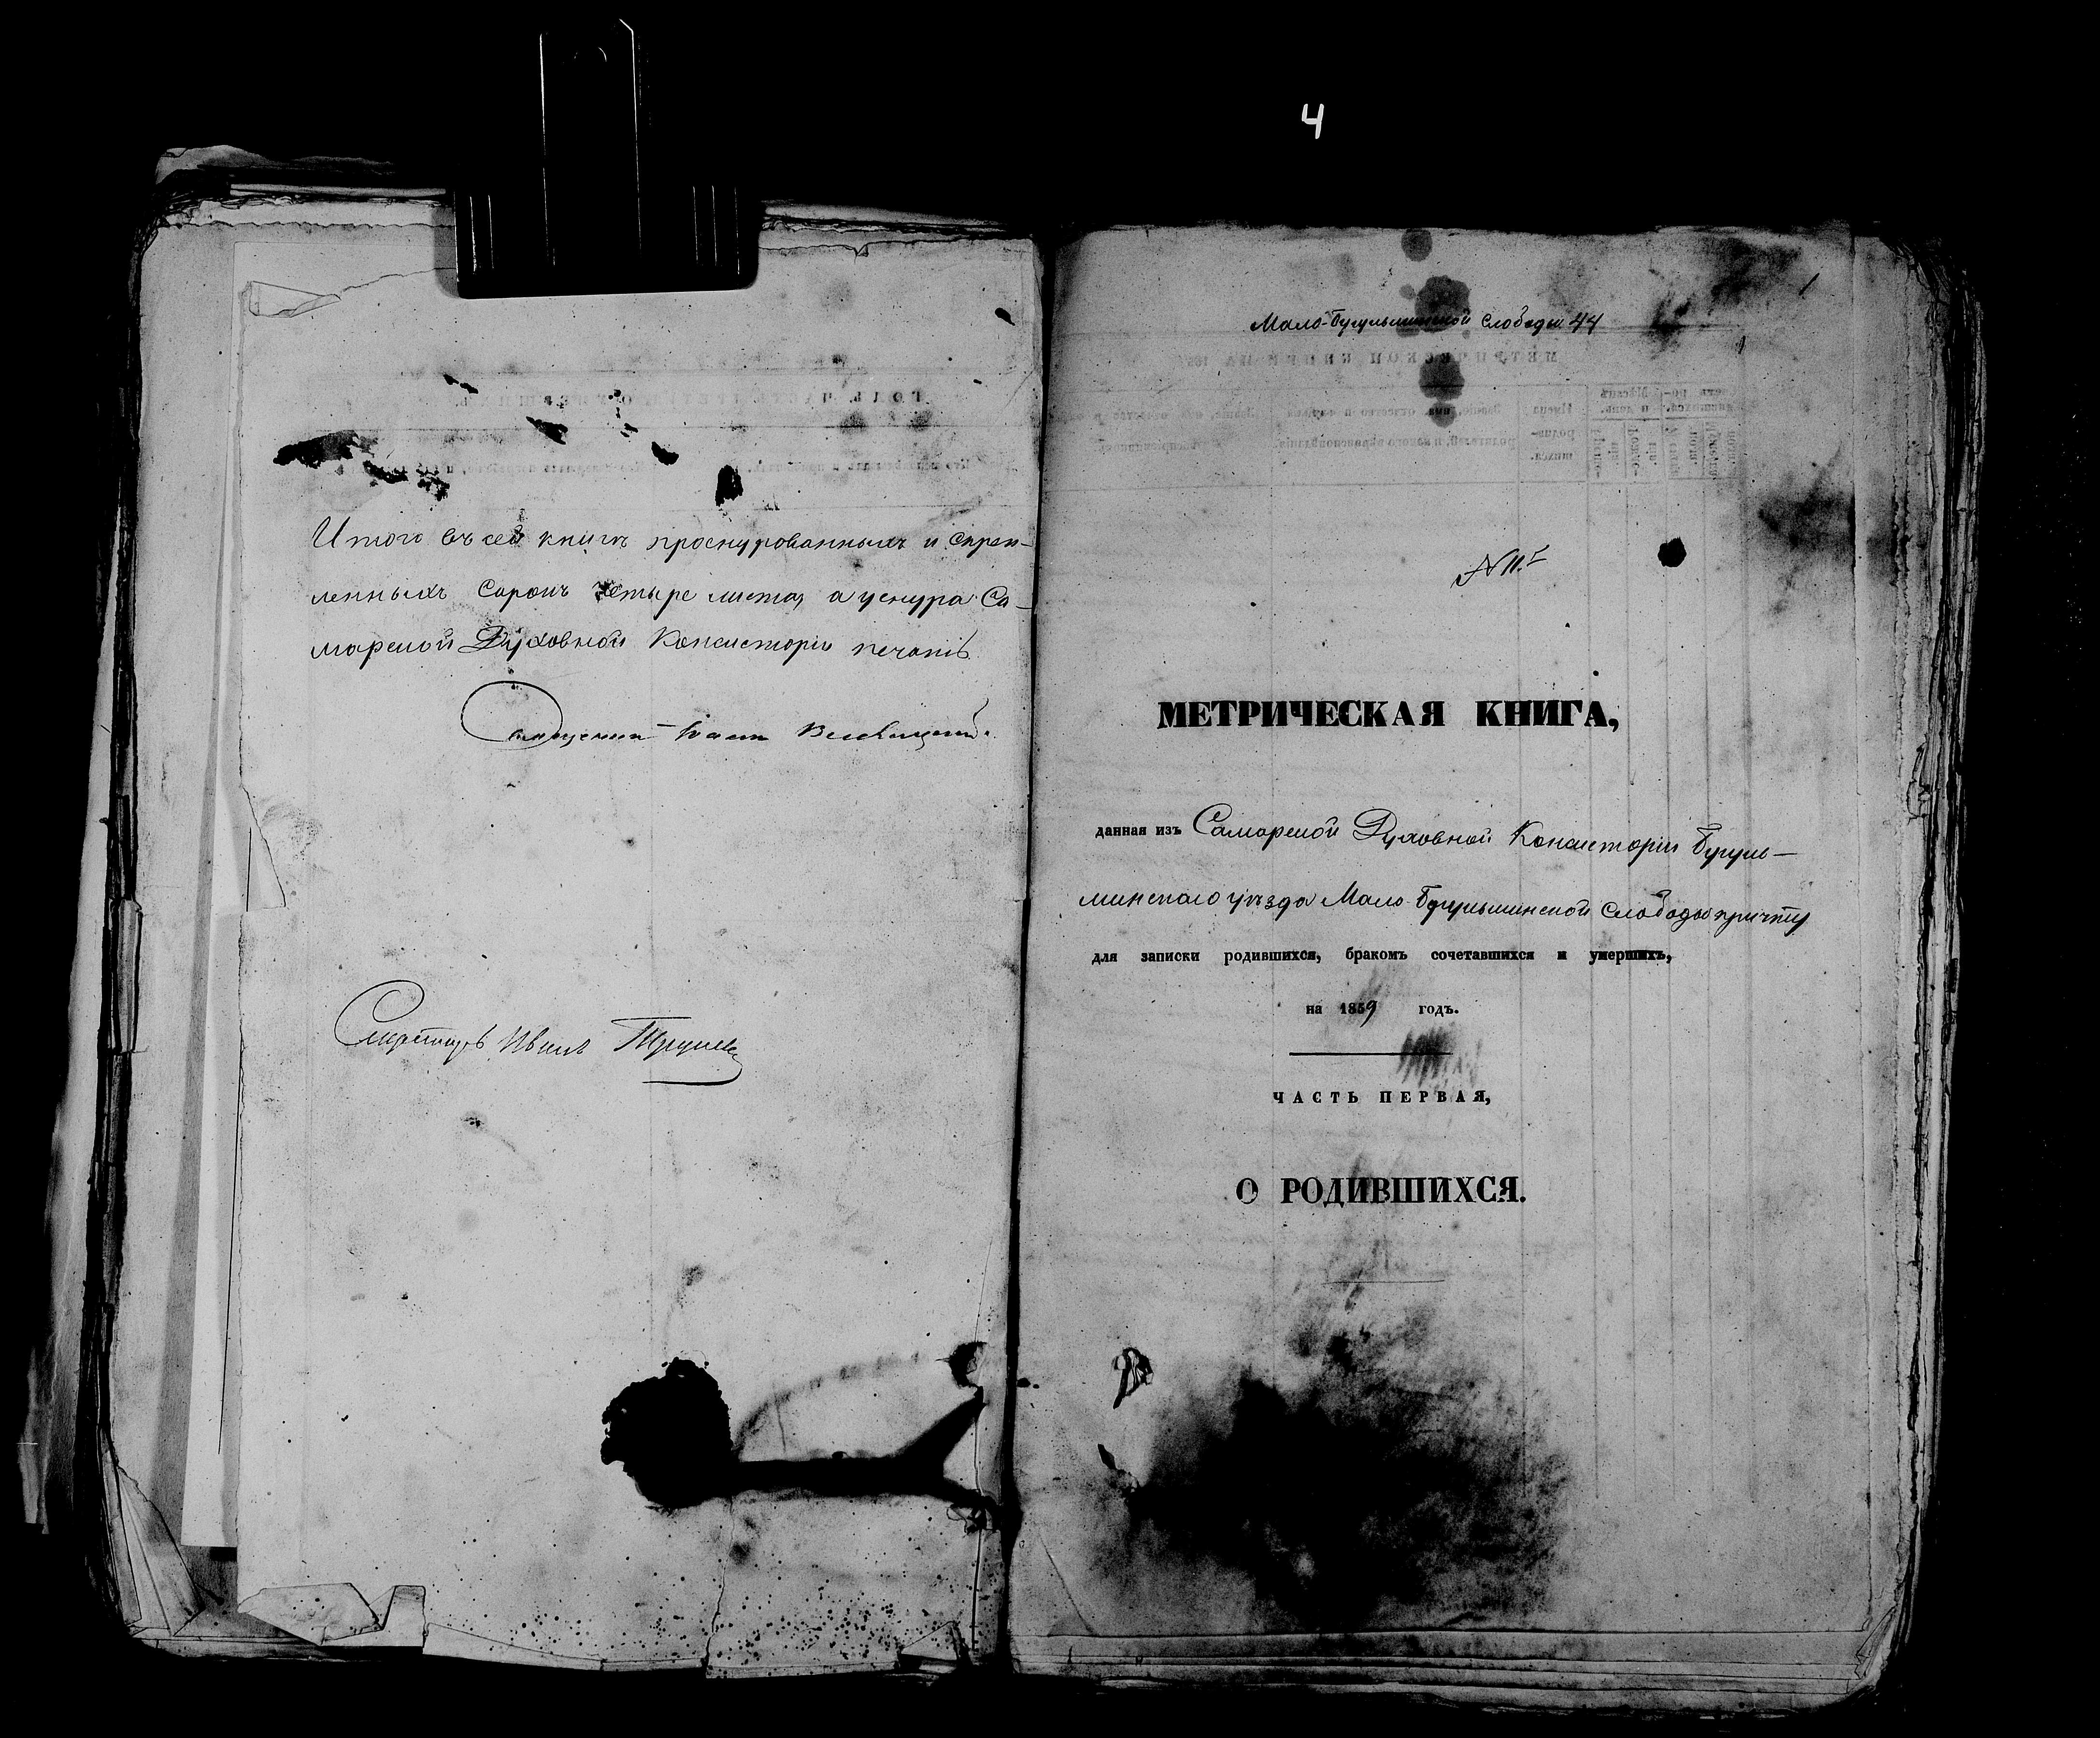 4
Итого въ сей книгѣ прошнурованныхъ и скреп-
ленныхъ сорокъ четыре листа, а у снура Са-
марской Духовной Консисторіи печать
Секретарь Иванъ
1
Мало-Бугульминской слободы 44
МЕТРИЧЕСКАЯ КНИГА,
данная изъ Самарской Духовной Консисторіи Бугуль-
минскаго уѣзда Мало-Бугульминской Слободы причту
для записки родившихся, бракомъ сочетавшихся и умершихъ,
на 1859 годъ.
ЧАСТЬ ПЕРВАЯ,
О РОДИВШИХСЯ.